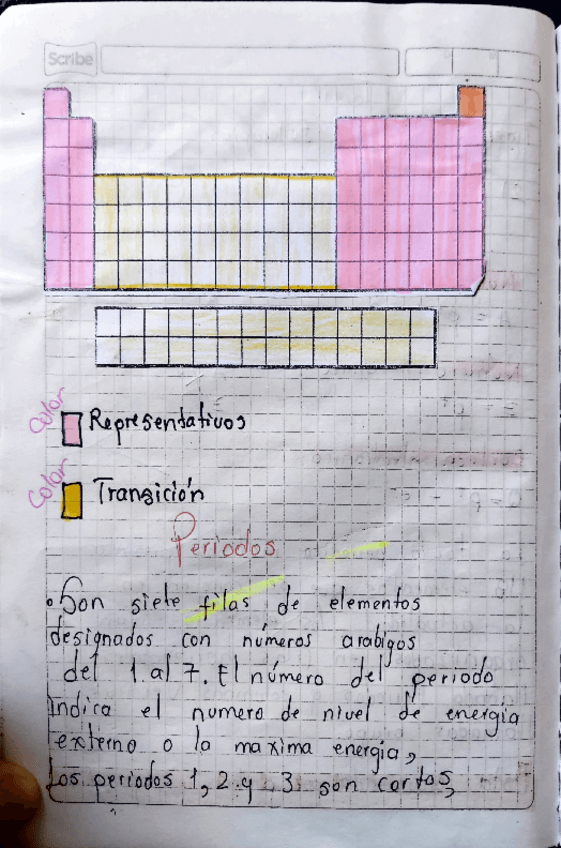 Scribe
Color
Representativos
Color
Transición
Periodos
Son siete filas de elementos
designados con números arabigos
del 1 al 7. El número del periodo
Indica el numero de nivel de energia
externo o la maxima energia,
Los periodos 1, 2 y 3 son cortos,